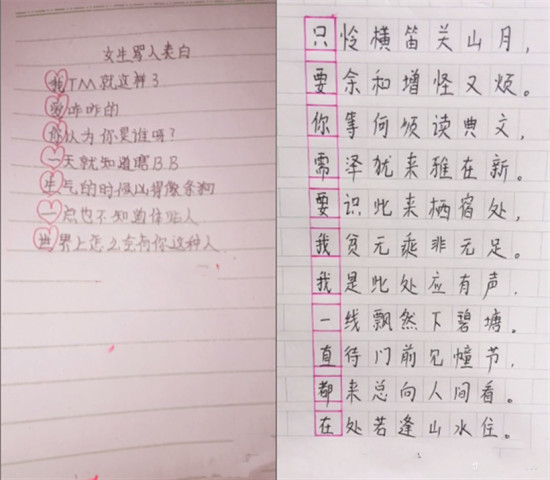 女生骂人表白
我TM就这样了
爱咋咋的
你认为你是谁呀?
一天就知道B.B
生气的时候凶得像条狗
一点也不知道体贴人
世界上怎么会有你这种人
只怜横笛关山月,
要余和增怪又烦。
你等何须读典文,
需泽犹来雅在新。
要识此来栖宿处,
我贫无乘非无足。
我是此处应有声,
一线飘然下碧塘。
直待门前见憧节,
都来总向人间看。
在处若逢山水住。